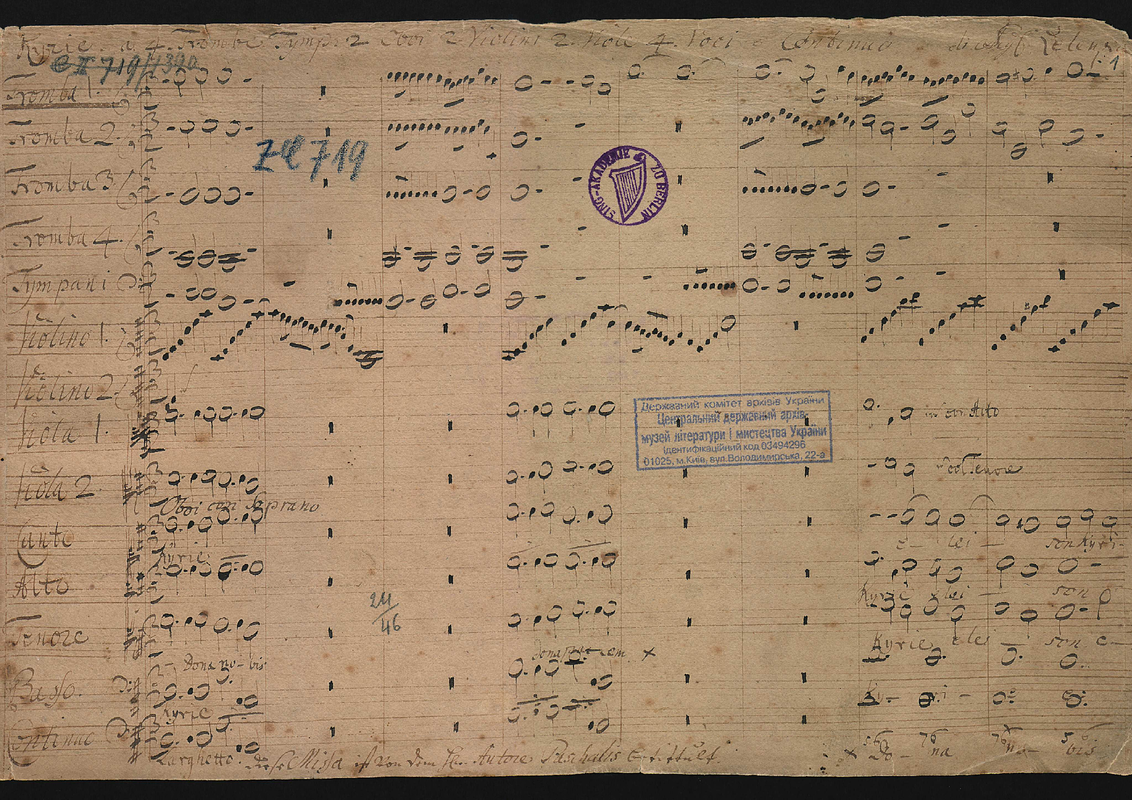 Kyrie. a 4 Trombe Tympa 2 Oboi 2 Violini 2 Viole 4 Voci Continuo
1
ZC 719
SING-AKADEMIE ZU BERLIN
Tromba 1.
Tromba 2
Tromba 3
Tromba 4.
Tympani
Violino 1.
Violino 2
Viola 1.
Viola 2
Canto
Alto
Tenore
Basso.
Continuo
Державний комітет архівів України
Центральний державний архів-
музей літератури і мистецтва України
Ідентифікаційний код 03494296
01025, м.Київ, вул.Володимирська, 22-а
Alto
Tenore
Oboi con Soprano
Kyrie
e- lei - son Kyri-
24
46
Kyrie elei - son
Kyrie elei son e-
Dona no- bis
Kyrie
Larghetto.
Missa ist von dem H. Autore Paschalis
Do- na no- bis